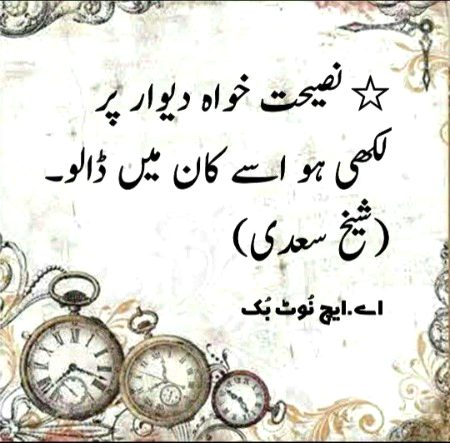 ☆ نصیحت خواہ دیوار پر
لکھی ہو اسے کان میں ڈالو۔
(شیخ سعدی)
اے.ایچ نُوٹ بُک